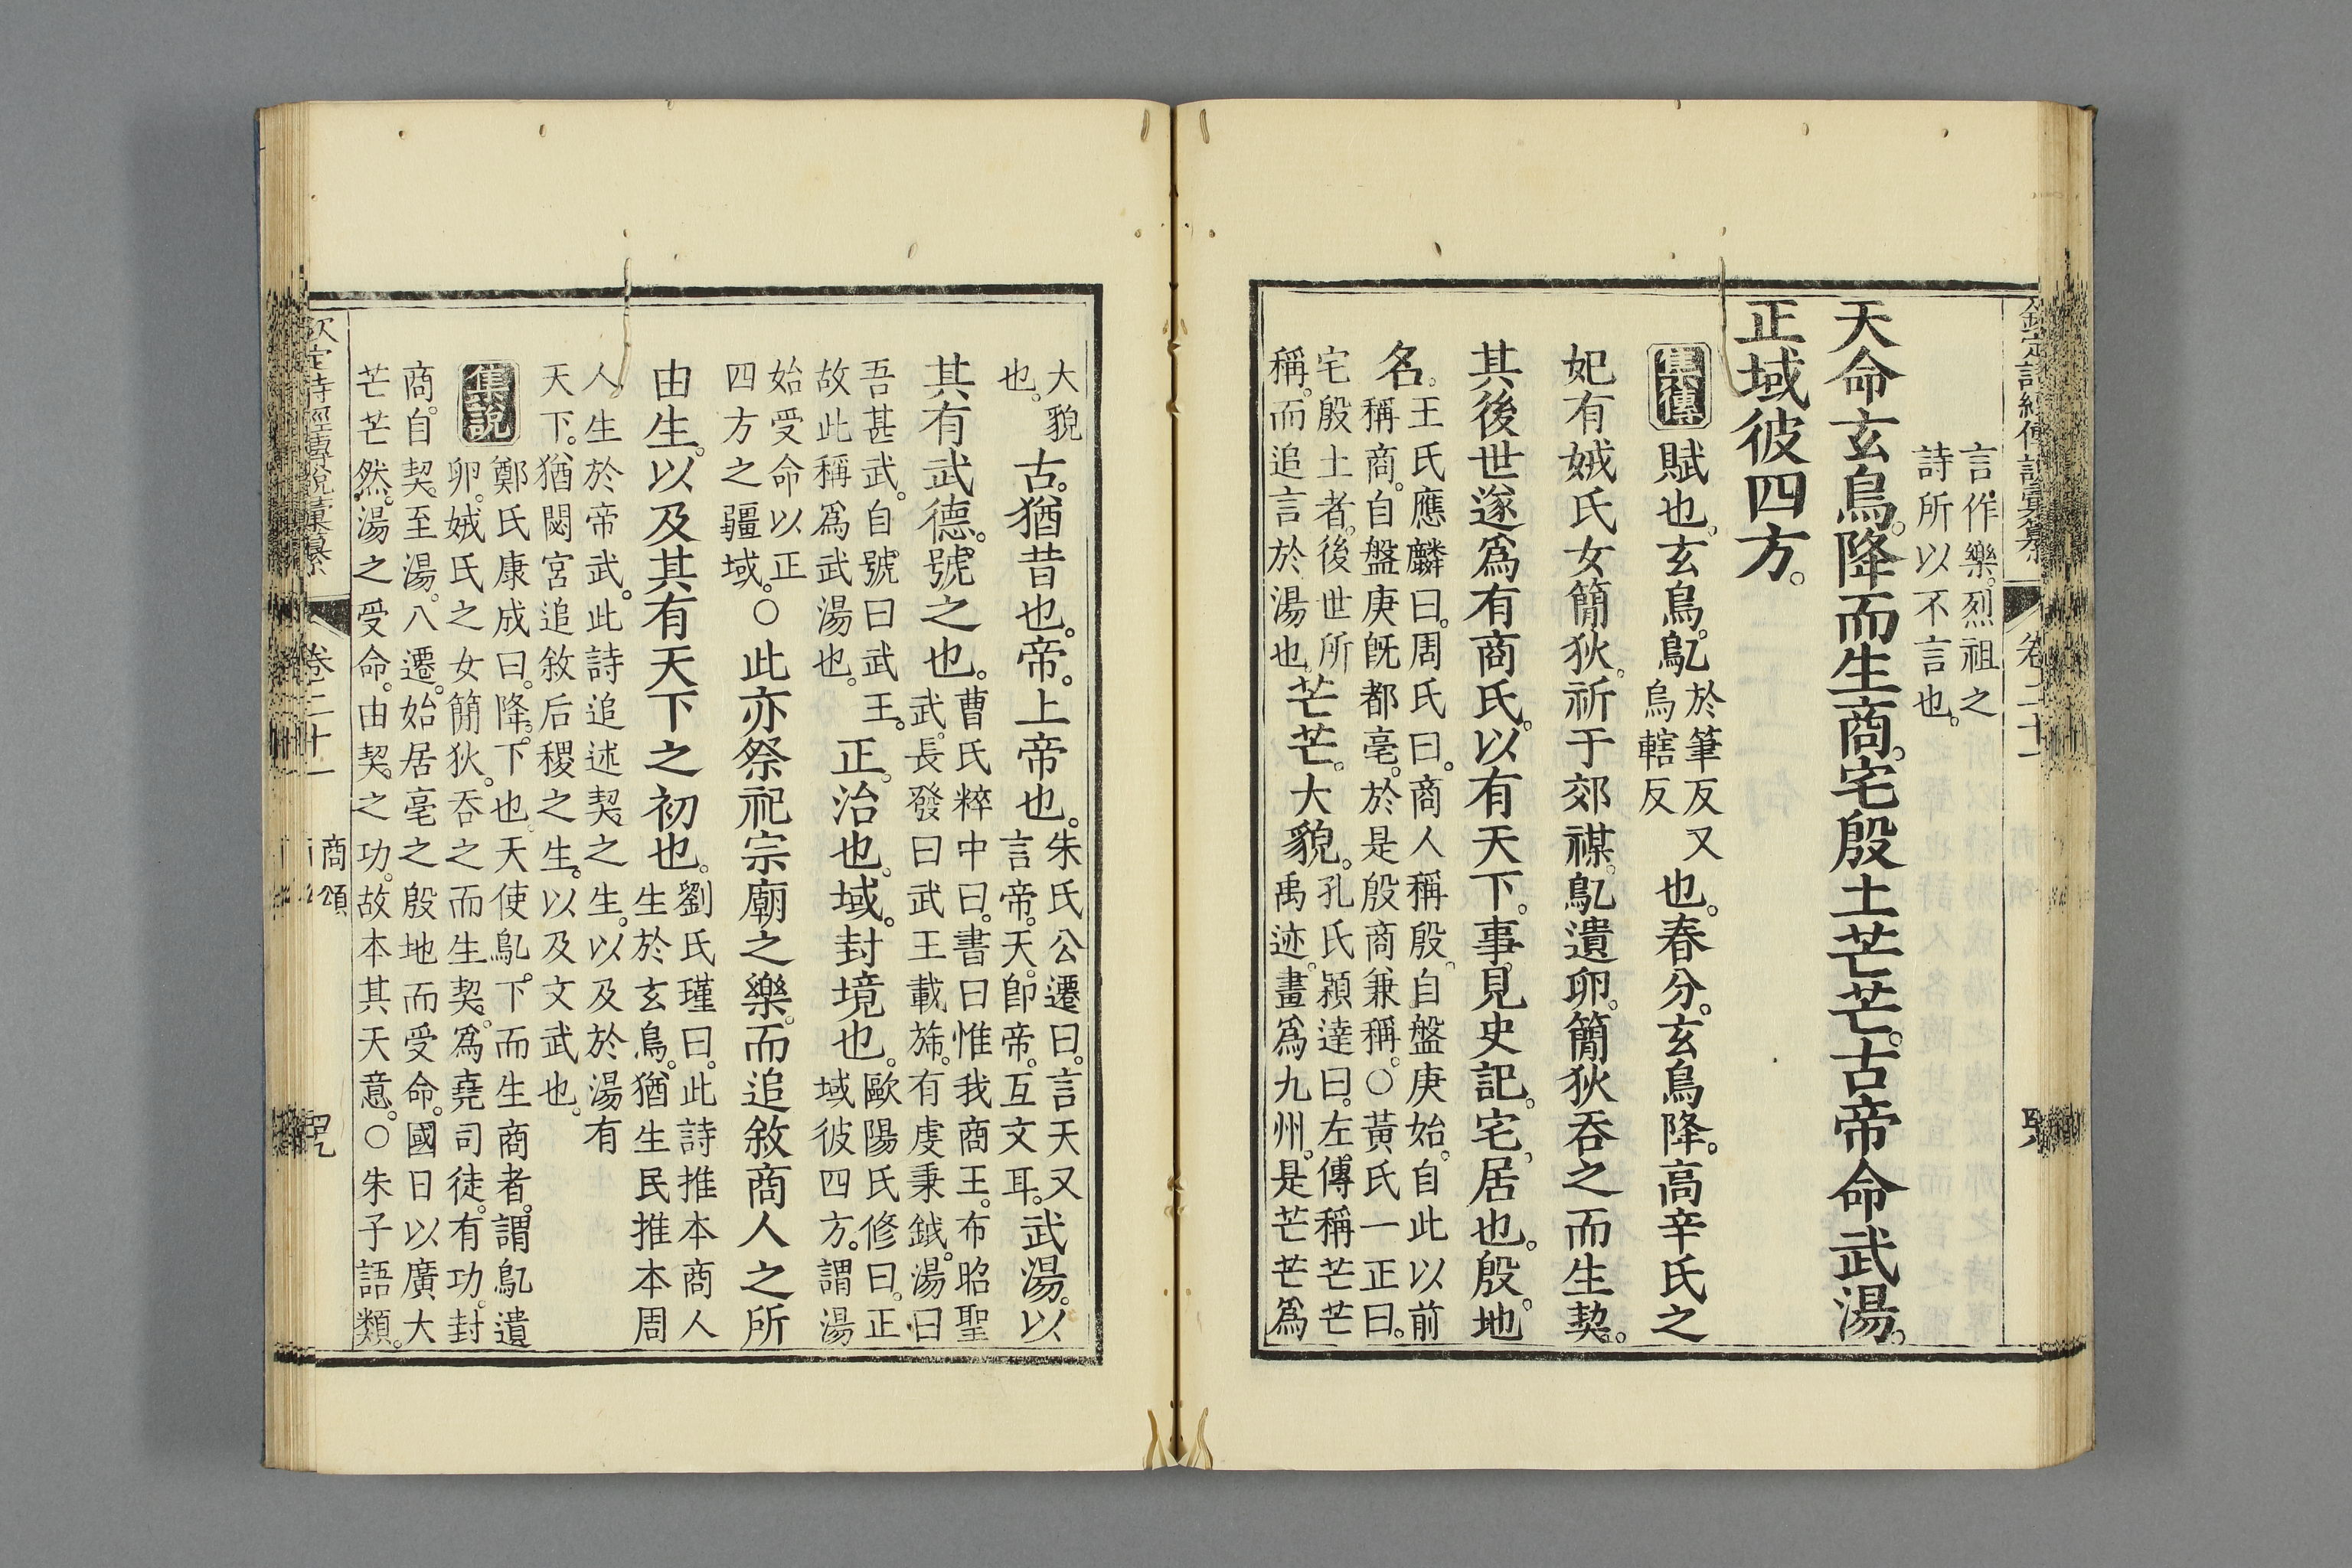 欽定詩經傳說彙纂 卷二十一
言作樂。烈祖之
詩所以不言也。
天命玄鳥。降而生商。宅殷土芒芒。古帝命武湯。
正域彼四方。
集傳 賦也。玄鳥。鳦
於筆反又
烏轄反
也。春分。玄鳥降。高辛氏之
妃有娀氏女簡狄。祈于郊禖。鳦遺卵。簡狄吞之而生契。
其後世遂爲有商氏。以有天下。事見史記。宅。居也。殷。地
名。
王氏應麟曰。周氏曰。商人稱殷。自盤庚始。自此以前
稱商。自盤庚旣都亳。於是殷商兼稱。○黃氏一正曰。
宅殷土者。後世所
稱。而追言於湯也。
芒芒。大貌。
孔氏穎達曰。左傳稱芒芒
禹迹。畫爲九州。是芒芒爲
大貌
也。
古。猶昔也。帝。上帝也。
朱氏公遷曰。言天又
言帝。天。卽帝。互文耳。
武湯。以
其有武德。號之也。
曹氏粹中曰。書曰惟我商王。布昭聖
武。長發曰武王載旆。有虔秉鉞。湯曰
吾甚武。自號曰武王。
故此稱爲武湯也。
正。治也。域。封境也。
歐陽氏修曰。正
域彼四方。謂湯
始受命以正
四方之疆域。
○此亦祭祀宗廟之樂。而追敘商人之所
由生。以及其有天下之初也。
劉氏瑾曰。此詩推本商人
生於玄鳥。猶生民推本周
人生於帝武。此詩追述契之生。以及於湯有
天下。猶閟宮追敘后稷之生。以及文武也。
集說
鄭氏康成曰。降。下也。天使鳦下而生商者。謂鳦遺
卵。娀氏之女簡狄。吞之而生契。爲堯司徒。有功。封
商。自契至湯。八遷。始居亳之殷地而受命。國日以廣大
芒芒然。湯之受命。由契之功。故本其天意。○朱子語類。
欽定詩經傳說彙纂 卷二十一 商頌